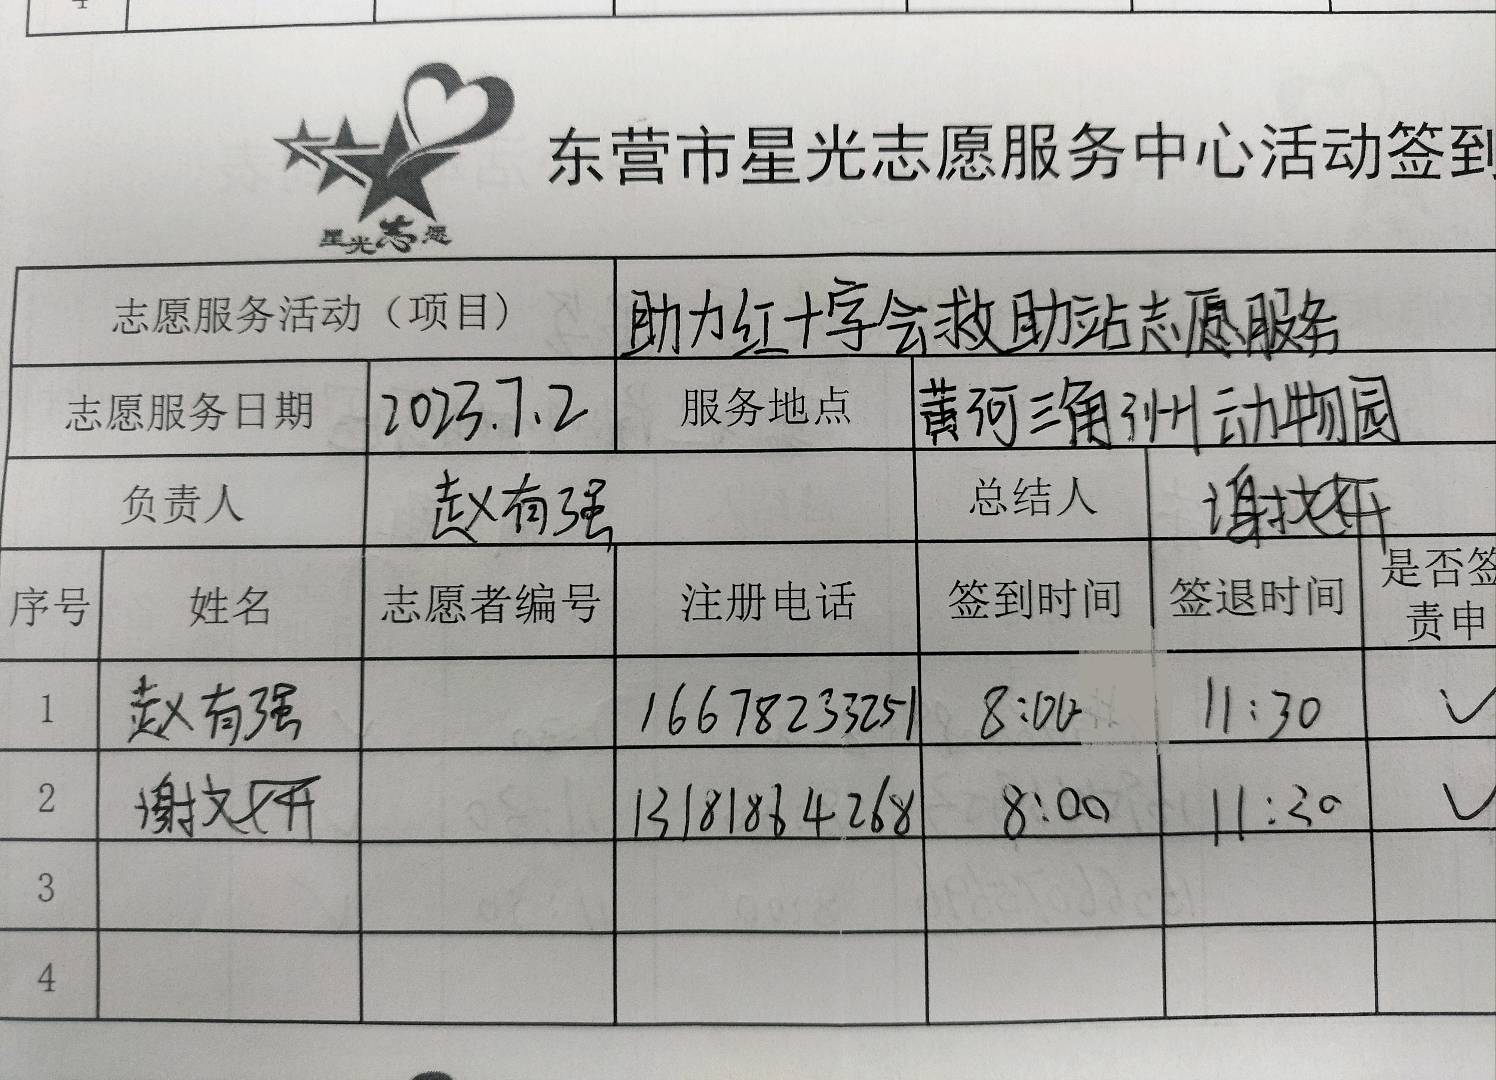 4
东营市星光志愿服务中心活动签到
星光志愿
志愿服务活动（项目） 助力红十字会救助站志愿服务
志愿服务日期 2023.7.2 服务地点 黄河三角洲动物园
负责人 赵有强 总结人 谢文开
序号 姓名 志愿者编号 注册电话 签到时间 签退时间 是否签
责申
1 赵有强 16678233251 8:00 11:30 ✓
2 谢文开 13181864268 8:00 11:30 ✓
3
4